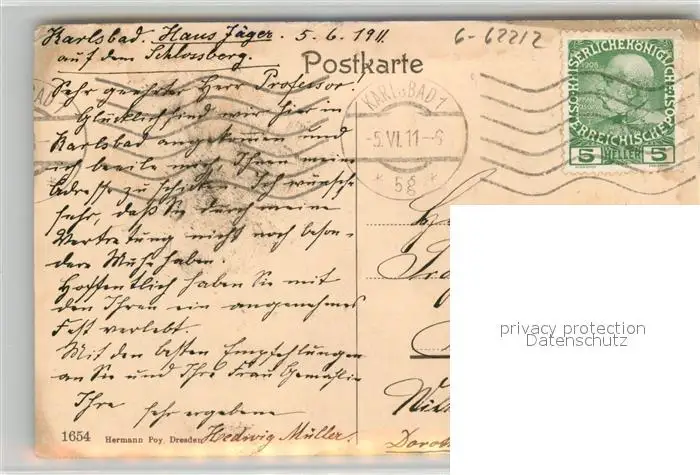 Karlsbad. Haus Jäger. 5. 6. 1911.
auf dem Schlossberg.
6-62212
Postkarte
Sehr geehrter Herr Professor!
Glücklich sind wir hier in
Karlsbad angekommen und
ich beeile mich, Ihnen meine
Adresse zu schicken. Ich wünsche
sehr, daß Sie durch meine
Vertretung nicht noch beson-
dere Mühe haben.
Hoffentlich haben Sie mit
den Ihren ein angenehmes
Fest verlebt.
Mit den besten Empfehlungen
an Sie und Ihre Frau Gemahlin
Ihre sehr ergebene
Hedwig Müller.
1654 Hermann Poy, Dresden
KARLSBAD 1
5.VI.11-6
* 5g *
KAISERLICHEKÖNIGLICHE
ÖSTERREICHISCHE POST
1908
5 HELLER 5
privacy protection
Datenschutz